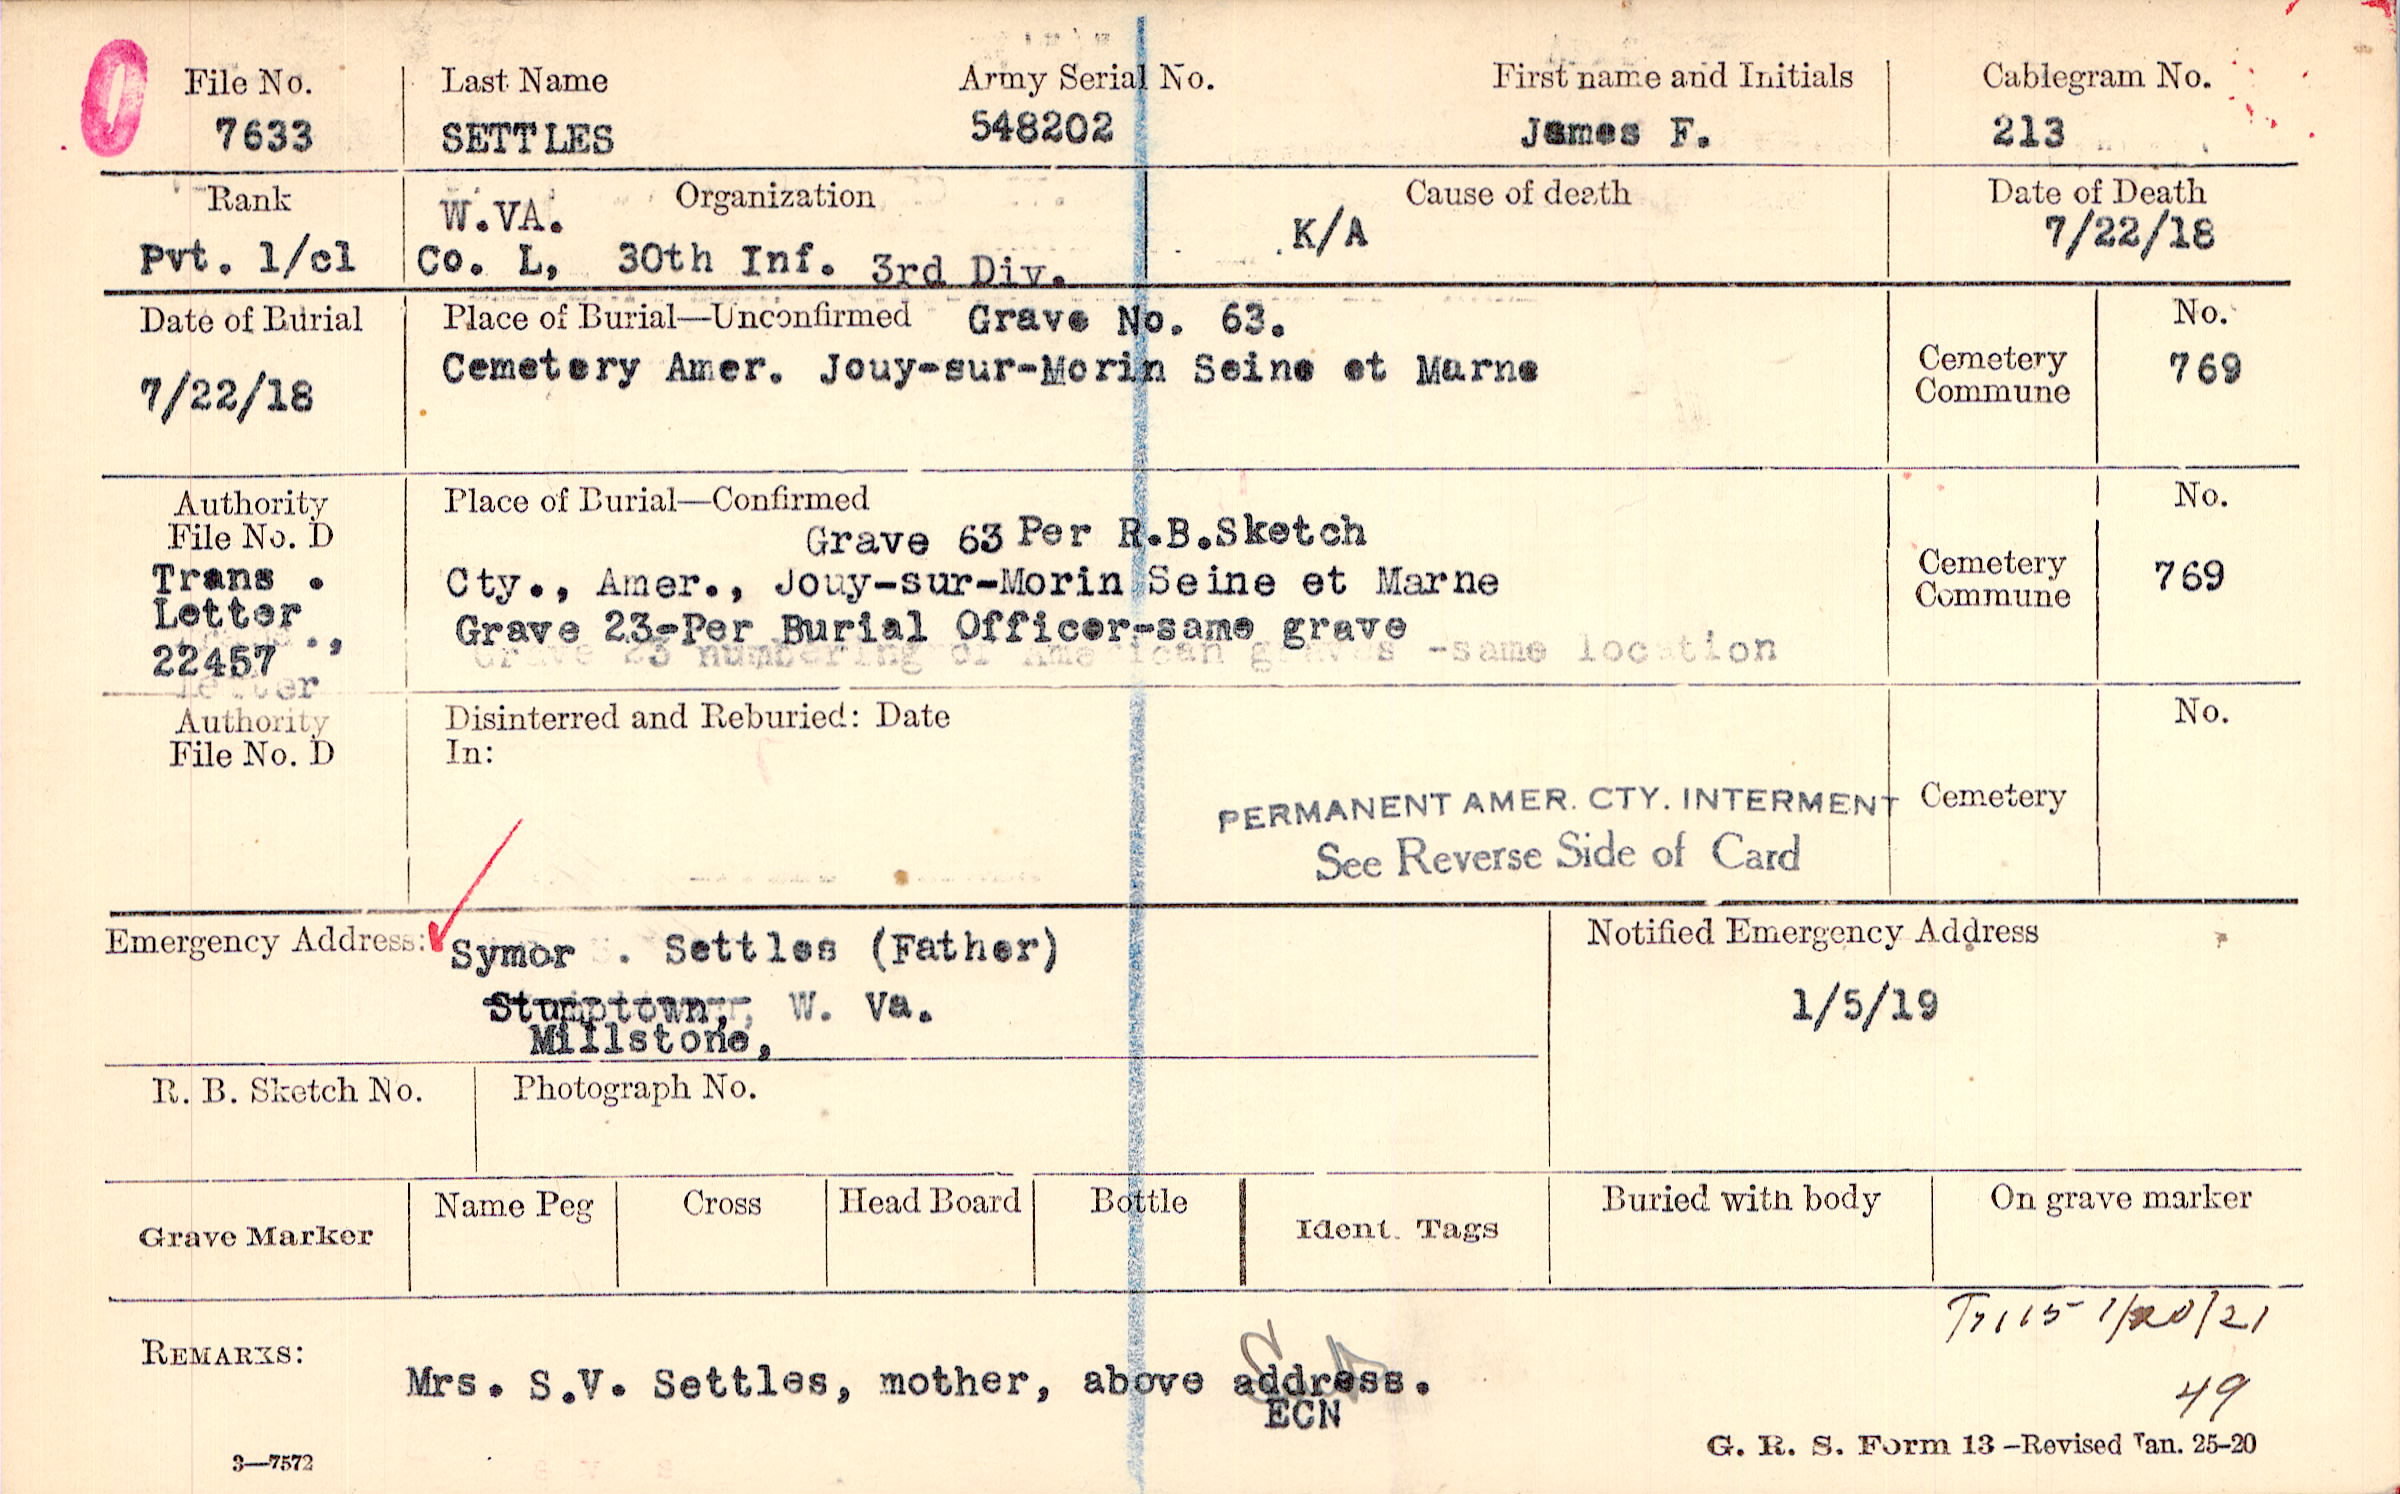 File No. Last Name Army Serial No. First name and Initials Cablegram No.
7633 SETTLES 548202 James F. 213
Rank Organization Cause of death Date of Death
W.VA. K/A 7/22/18
Pvt. 1/cl Co. L, 30th Inf. 3rd Div.
Date of Burial Place of Burial—Unconfirmed Grave No. 63. No.
7/22/18 Cemetery Amer. Jouy-sur-Morin Seine et Marne Cemetery Commune 769
Authority Place of Burial—Confirmed No.
File No. D Grave 63 Per R.B.Sketch
Trans . Cty., Amer., Jouy-sur-Morin Seine et Marne Cemetery Commune 769
Letter Grave 23-Per Burial Officer-same grave
22457 Grave 23 numbering of American graves -same location
Letter
Authority Disinterred and Reburied: Date No.
File No. D In:
PERMANENT AMER. CTY. INTERMENT Cemetery
See Reverse Side of Card
Emergency Address: Symor . Settles (Father) Notified Emergency Address
Stumptown, W. Va. 1/5/19
Millstone,
R. B. Sketch No. Photograph No.
Grave Marker Name Peg Cross Head Board Bottle Ident. Tags Buried with body On grave marker
1/20/21
REMARKS:
Mrs. S.V. Settles, mother, above address.
ECN
49
3—7572 G. R. S. Form 13—Revised Jan. 25-20